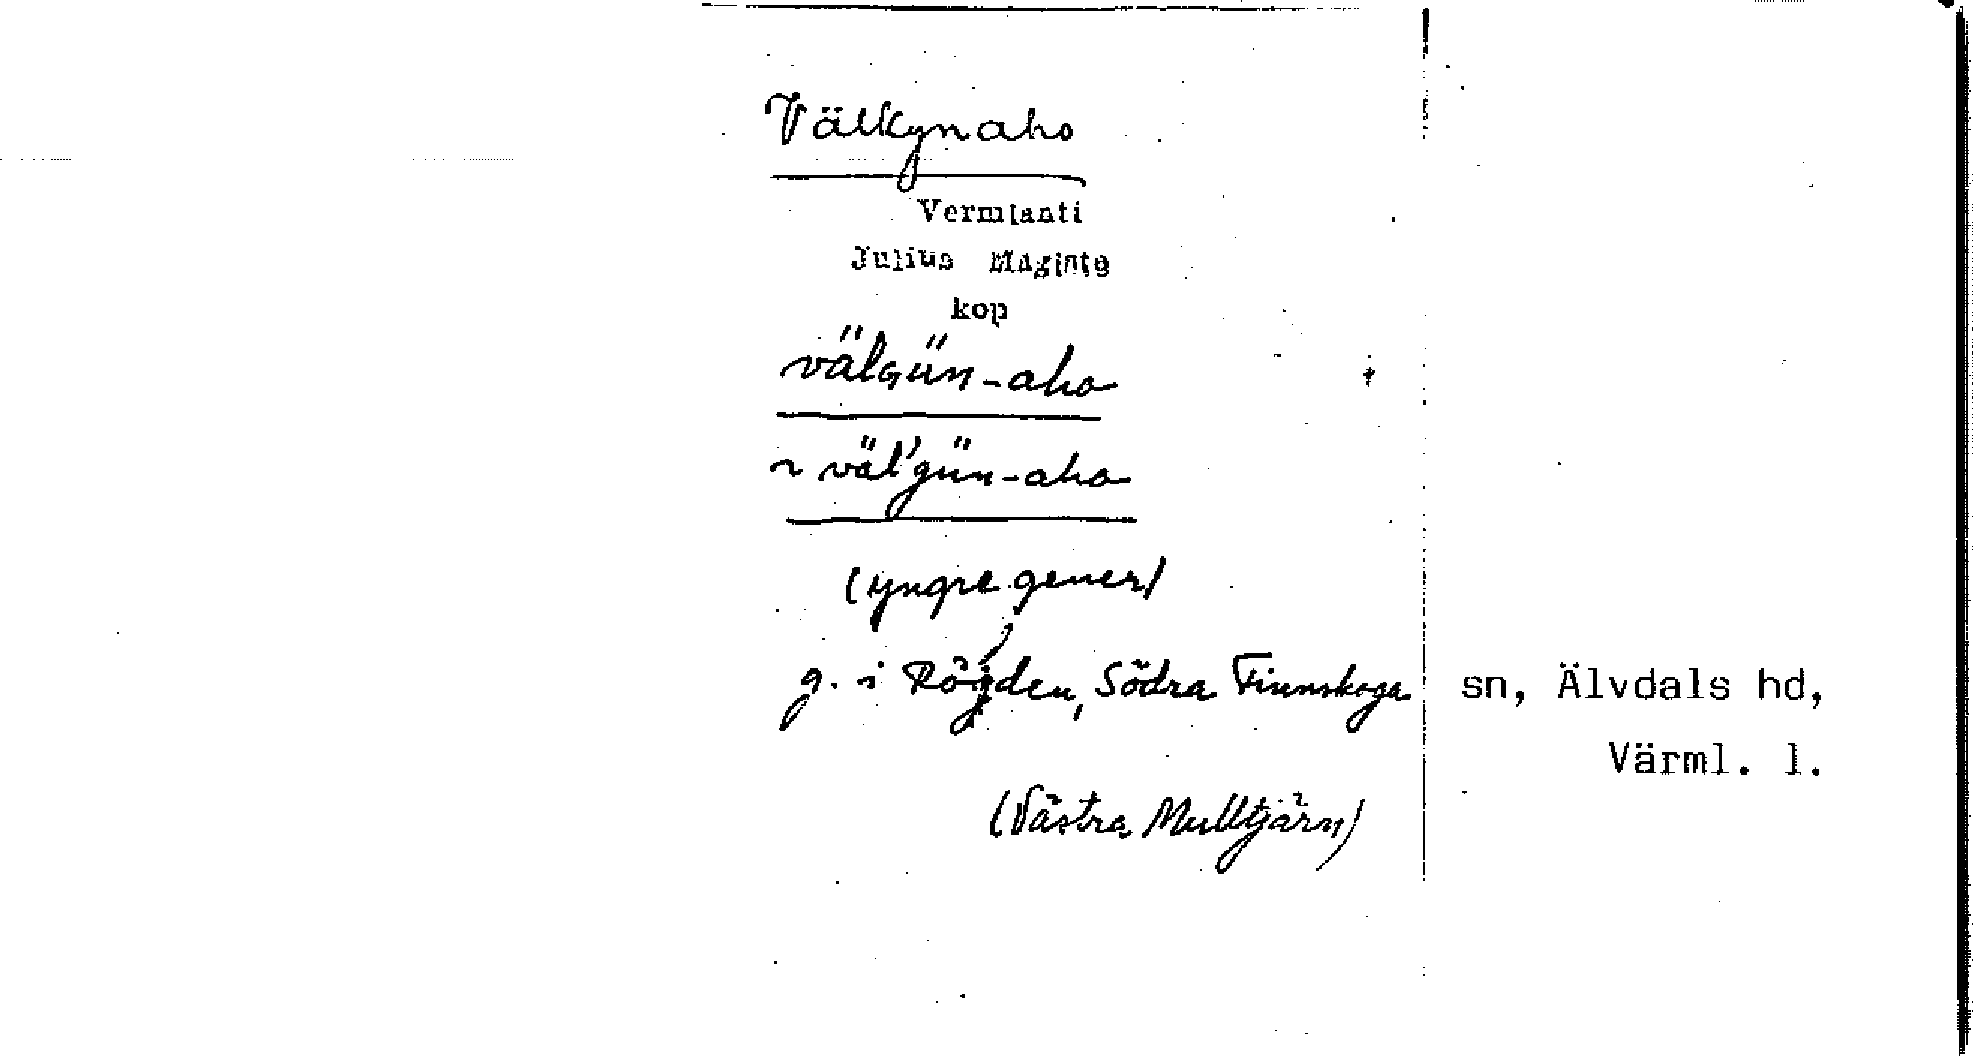 Välkynaho
Vermlanti
Julius Mägiste
kop
välGün-aho
~ väl'gün-aho
(yngre gener)
g. i Röjden, Södra Finnskoga sn, Älvdals hd,
Värml. l.
(Västra Mulltjärn)